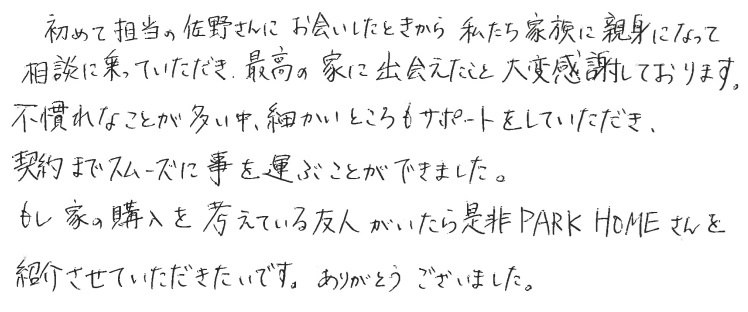 初めて担当の佐野さんにお会いしたときから 私たち家族に親身になって
相談に乗っていただき、最高の家に出会えたこと大変感謝しております。
不慣れなことが多い中、細かいところもサポートをしていただき、
契約までスムーズに事を運ぶことができました。
もし家の購入を考えている友人がいたら是非PARK HOMEさんを
紹介させていただきたいです。ありがとうございました。